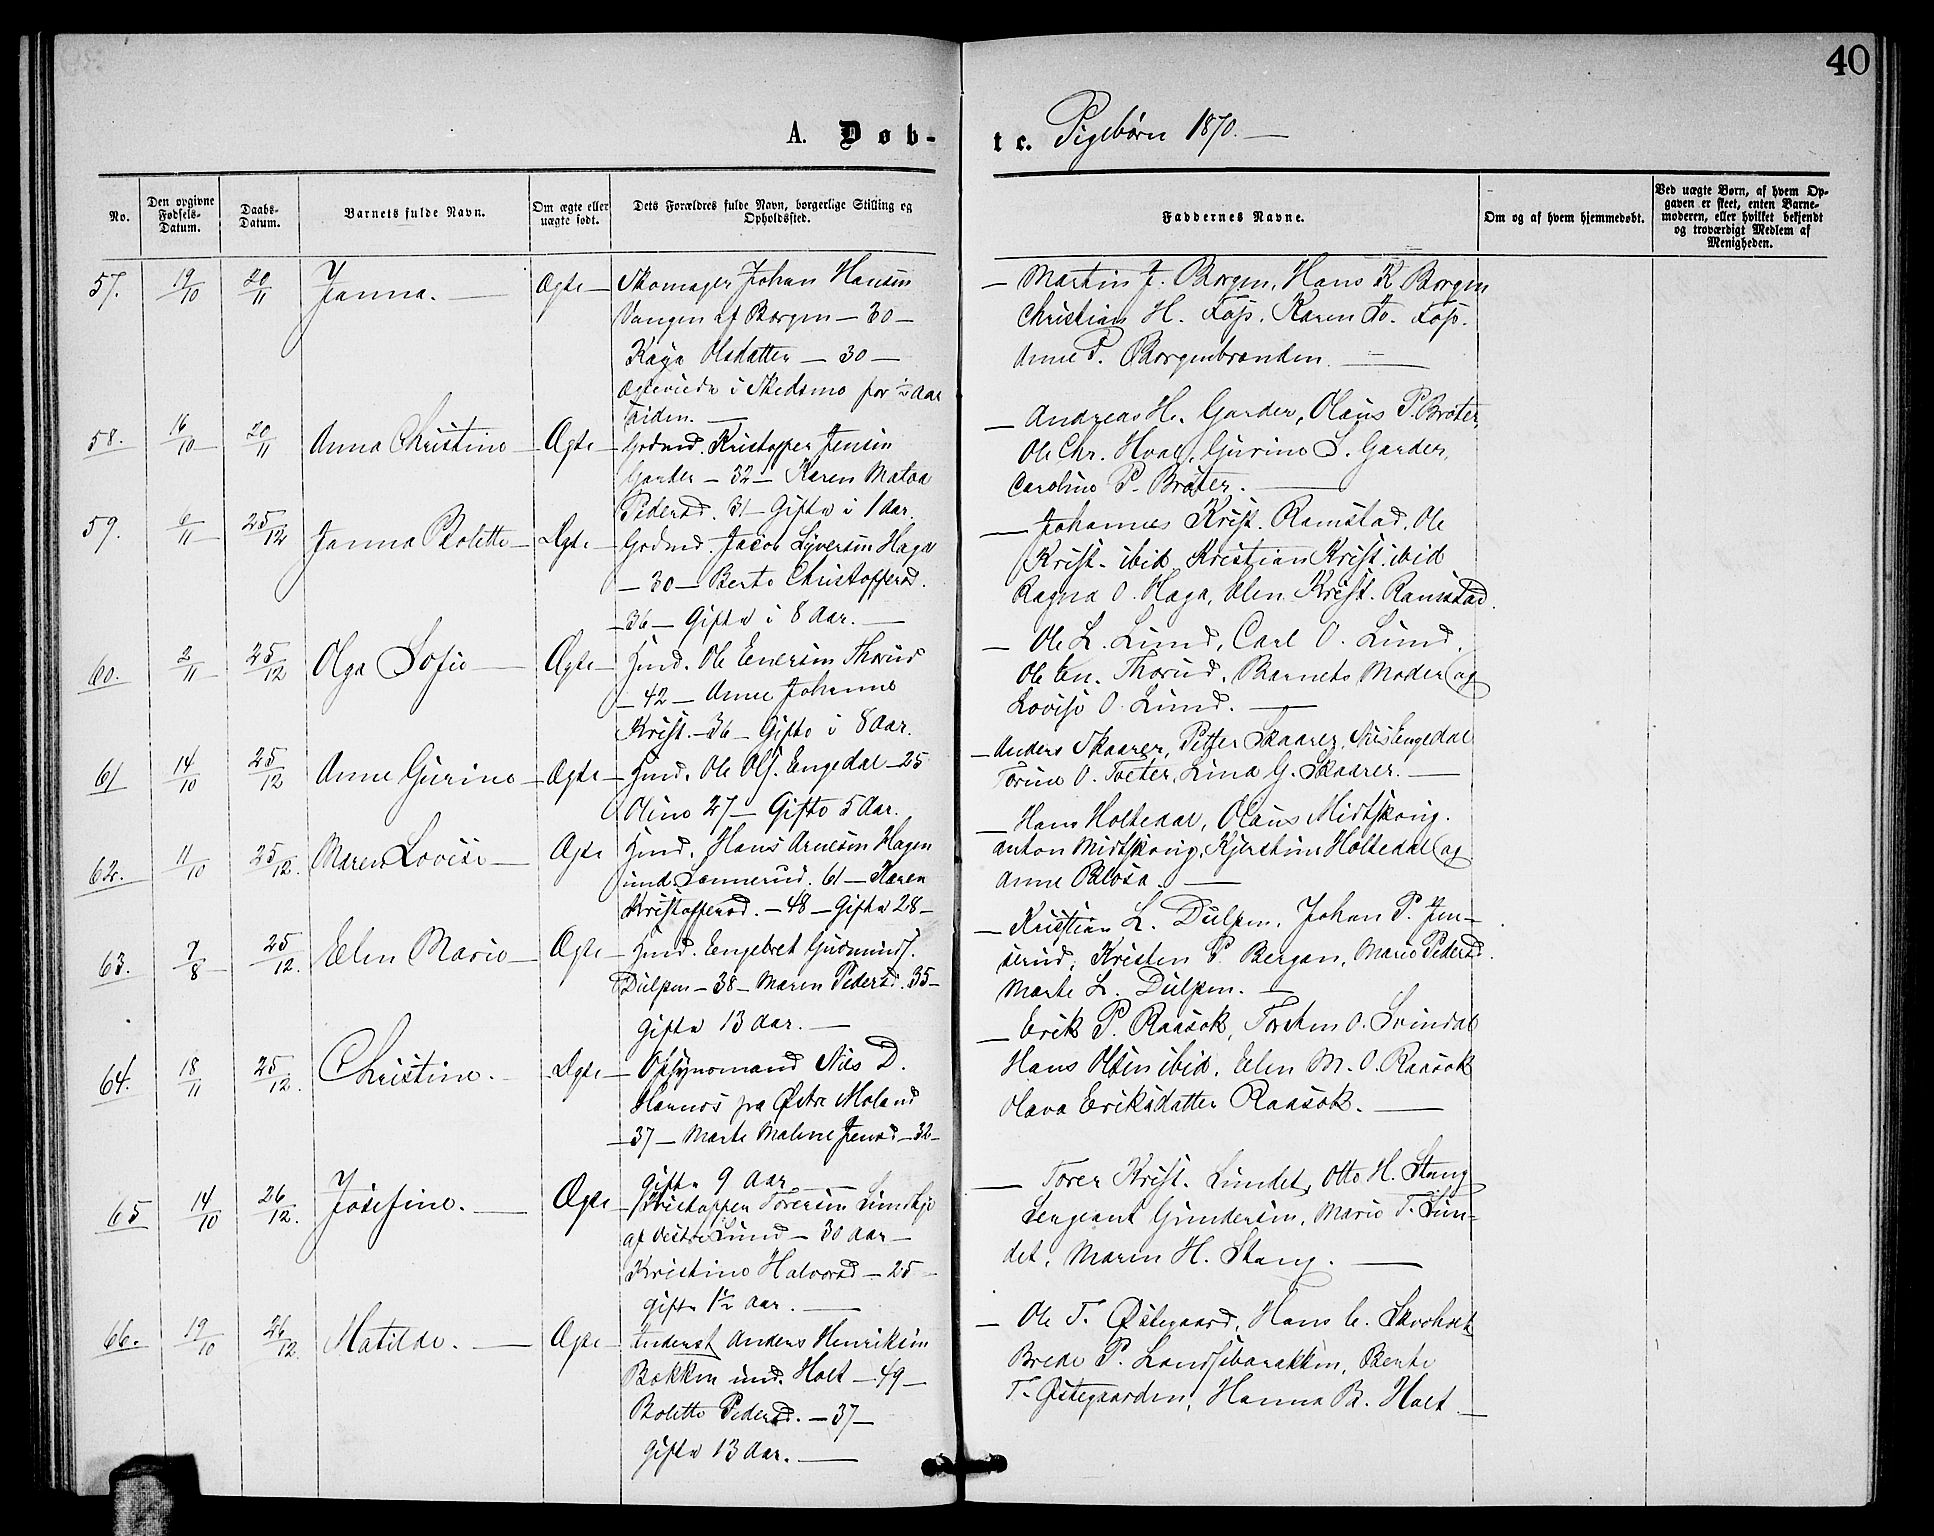 40
A. Døb-
te. Pigebørn 1870.
No.
Den opgivne Fødsels-Datum.
Daabs-Datum.
Barnets fulde Navn.
Om ægte eller uægte født.
Dets Forældres fulde Navn, borgerlige Stilling og Opholdssted.
Faddernes Navne.
Om og af hvem hjemmedøbt.
Ved uægte Børn, af hvem Opgaven er skeet, enten Barnemoderen, eller hvilket bekjendt og troværdigt Medlem af Menigheden.
57. 19/10 20/11 Janna. Ægte Skomager Johan Hansen
Vangen af Borgen - 30 -
Kaja Olsdatter - 30 -
Ægteviede i Skedsmo for ½ Aar
siden.
Martin J. Borgen, Hans K Borgen
Christian H. Karen
Anne P. Borgenbraaten
58. 16/10 20/11 Anna Christine Ægte Gdmd. Kristoffer Jensen
Garder - 32 - Karen Matea
Pedersd. 31 - Gifte i 1 Aar.
Andreas H. Garder, Olaus P. Brøter,
Ole Chr. Hval, Gurine S. Garder,
Caroline P. Brøter.
59. 6/11 25/12 Janna Bolette Ægte Gdmd. Jacob Syversen Haga
- 30 - Berte Christoffersd.
- 36 - Gifte i 8 Aar.
Johannes Krist. Ramstad, Ole
Krist. ibid, Kristian Krist. ibid
Ragna O. Haga, Elen Krist. Ramstad.
60. 2/11 25/12 Olga Sofie Ægte Hmd. Ole Enersen Thorud
- 42 - Anne Johanne
Krist. - 36 - Gifte i 8 Aar.
Ole L. Lund, Carl O. Lund,
Ole En. Thorud, Barnets Moder og
Lovise O. Lund.
61 14/10 25/12 Anne Gurine Ægte Hmd. Ole Ols. Engedal - 25
Oline 27 - Gifte 5 Aar.
Anders Skaarer, Petter Skaarer, Nils Engedal
Torine O. Toeter, Lina G. Skaarer.
62. 11/10 25/12. Maren Lovise Ægte Hmd. Hans Arnesen Hagen
und. Sannerud. 61 - Karen
Kristoffersd. - 48 - Gifte 28 -
Hans Holtedal, Olaus Midtskoug.
Anton Midtskoug, Kjerstine Holtedal og
Anne
63. 7/8 25/12. Elen Marie Ægte Hmd. Engebret Gudmunds.
Dulpen - 38 - Maren Pedersd. 35 -
Gifte 13 Aar.
Kristian L. Dulpen, Johan P. Jen-
serud, Kristen P. Bergan, Marie Pedersd.
Marte L. Dulpen.
64. 18/11 25/12. Christine. Ægte Opsynsmand Nils D.
Harnæs pa Østre Moland
- 37 - Marte Malene Jensd - 32 -
Gifte 9 Aar
Erik P. Raasok, Torsten O. Svindal
Hans Olsen ibid, Elen M. O. Raasok
Olava Eriksdatter Raasok.
65 14/10 26/12. Josefine. Ægte Kristoffer Toresen Lundkjø
af Vestre Lund - 30 Aar -
Kristine Halvorsd - 25 -
Gifte 1½ Aar.
Torer Krist. Lundet, Otto H. Stang
Sergeant Gundersen, Marie T. Lun-
det, Maren H. Stang.
66. 19/10 26/12. Matilde. Ægte Inderst Anders Henriksen
Bakken und. Holt - 49 -
Bolette Pedersd. - 37 -
Gifte 13 Aar.
Ole T. Østegaard, Hans C. Skovholt
Brede P. Landsibarakken, Berte
T. Østegaarden, Hanna B. Holt.